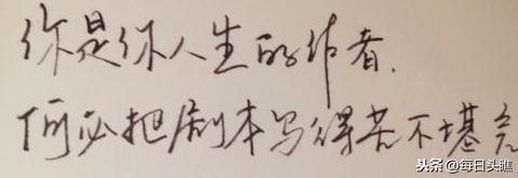 你是你人生的作者.
何必把剧本写得苦不堪言
头条@每日头瞧